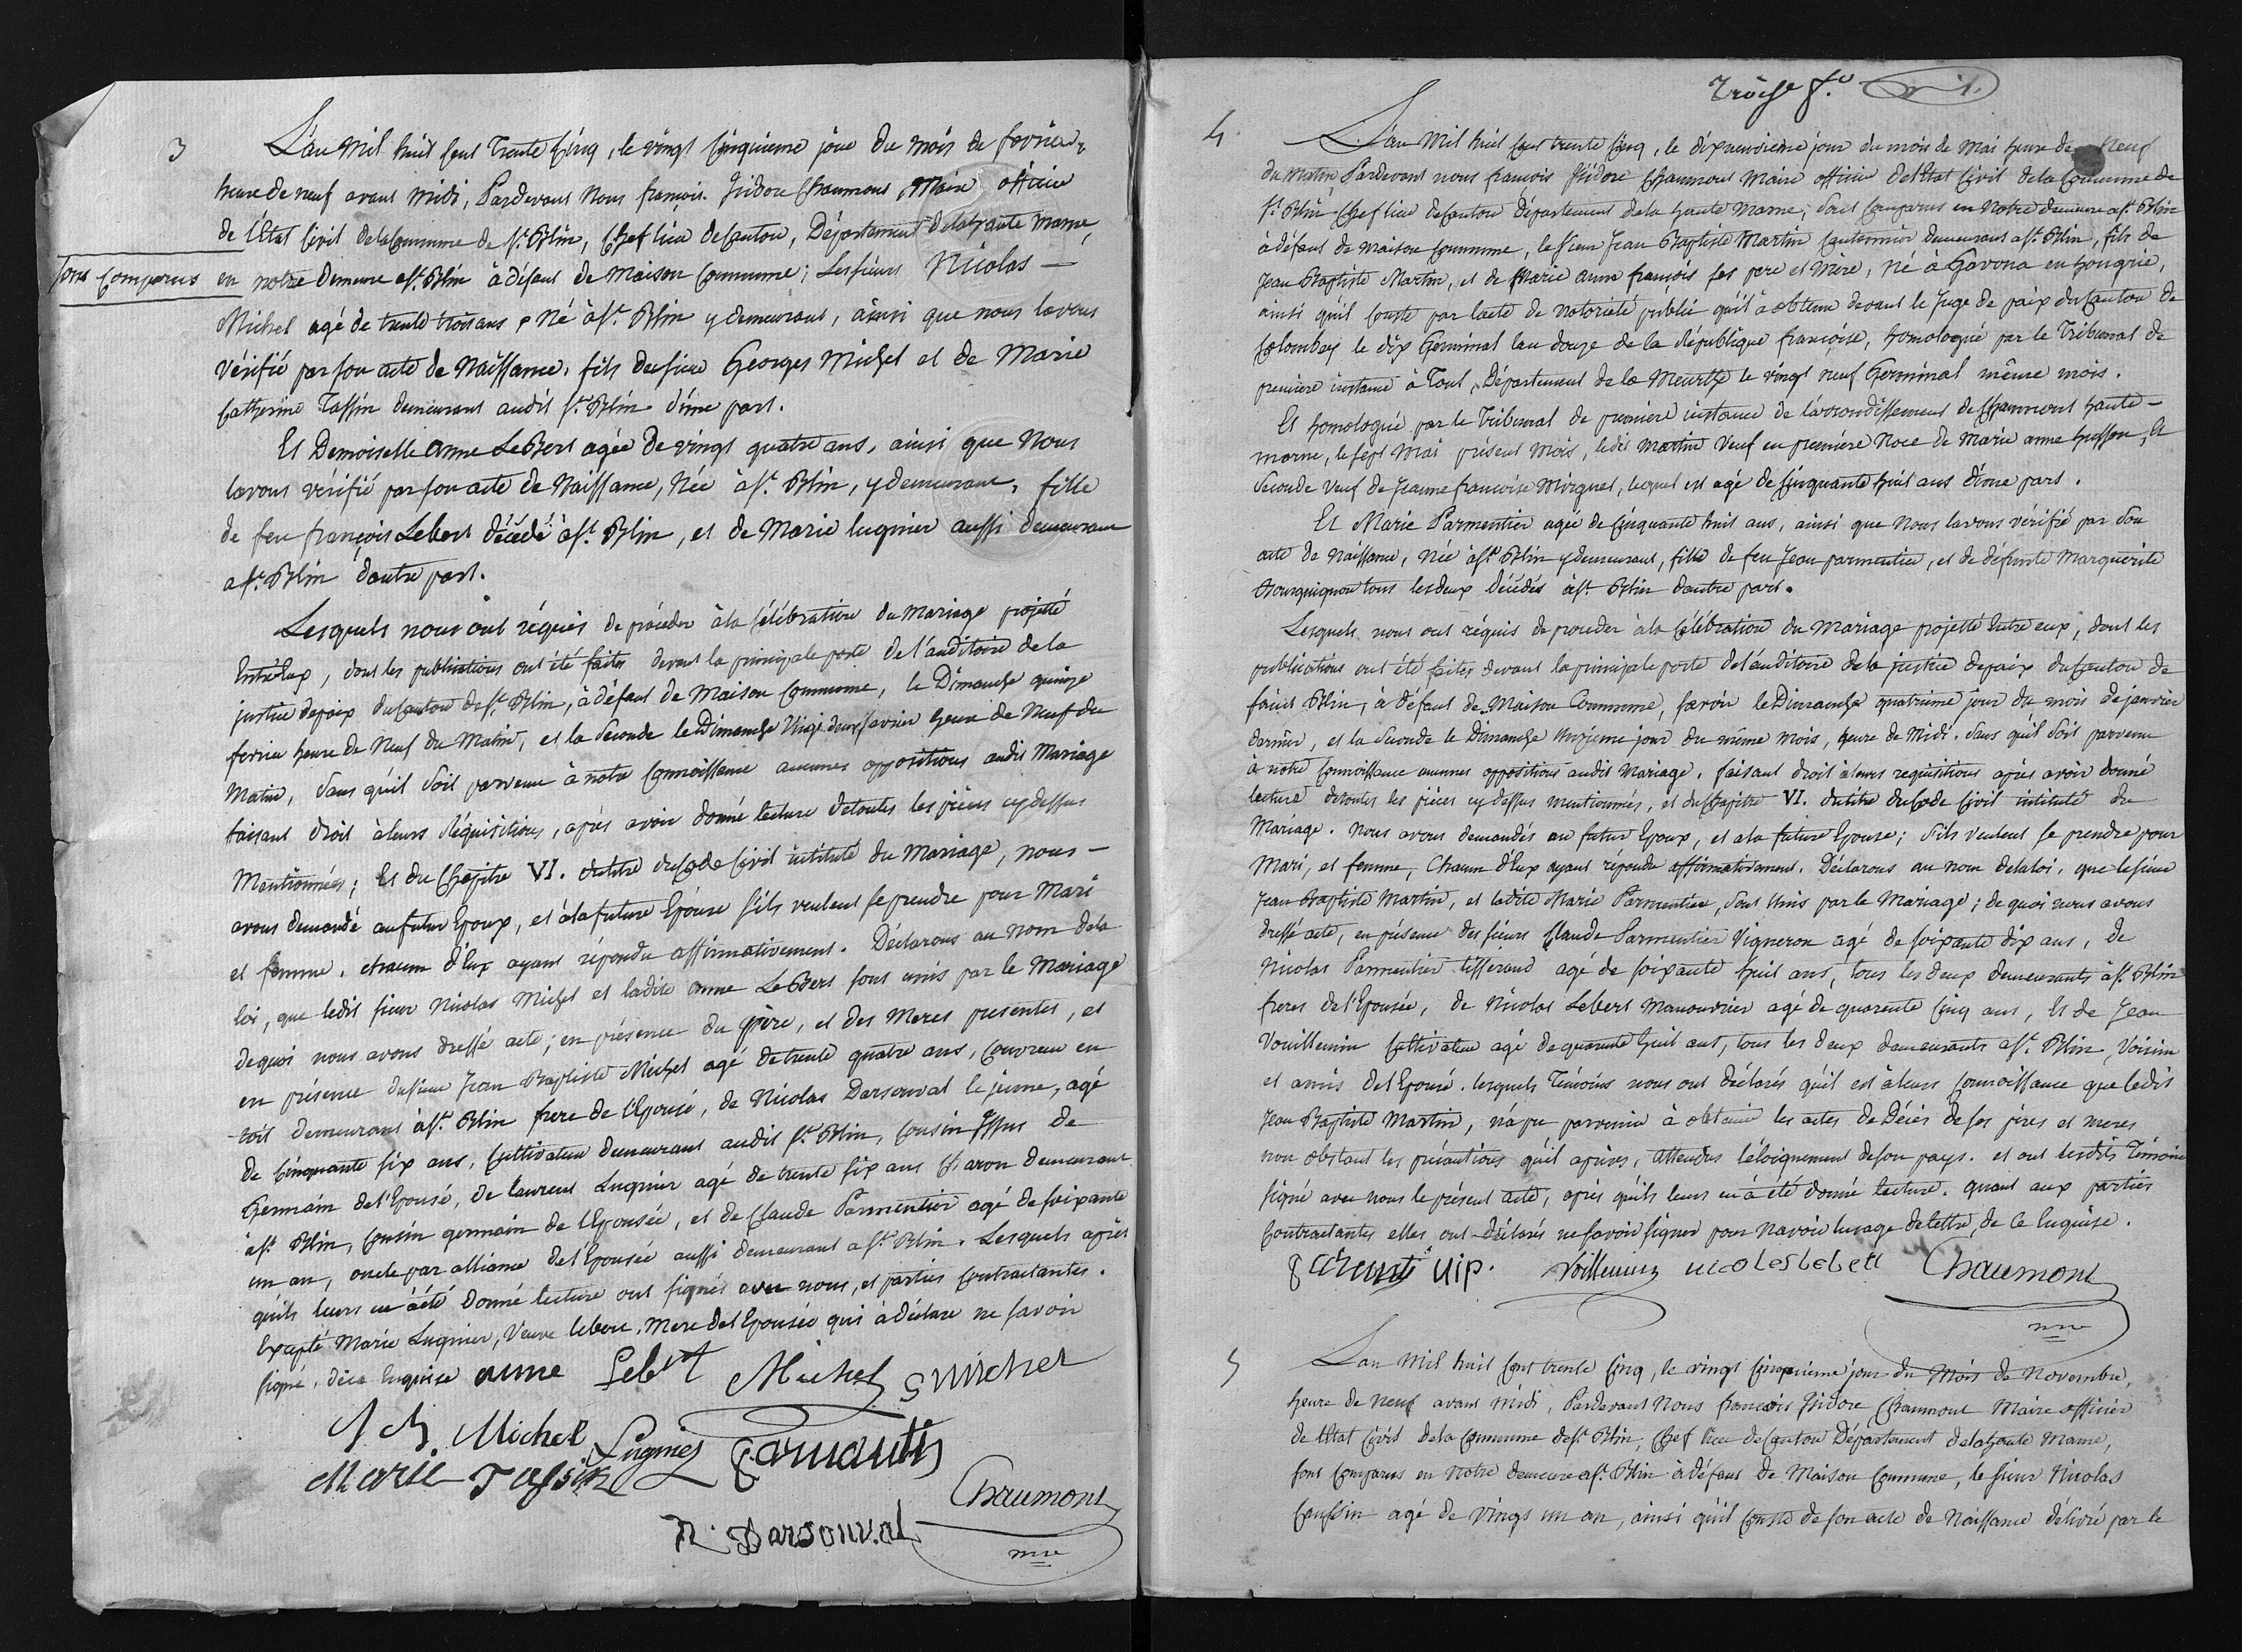 3
L'an Mil huit cent trente Cinq, le vingt Cinquieme jour du mois de fevrier,
heure de neuf avant midi, Pardevant Nous françois Isidore Chaumont Maire officier
de l'Etat Civil de la Commune de St. Blin, Chef lieu de Canton, Département de la haute Marne,
Sont Comparus en notre demeure a St. Blin à défaut de Maison Commune; Les sieurs Nicolas —
Michel agé de trente trois ans, Né à St. Blin y demeurant, ainsi que nous l'avons
vérifié par son acte de Naissance, fils du sieur Georges Michel et de Marie
Catherine Tassin demeurant audit St. Blin d'une part.
Et Demoiselle Anne LeBert agée de vingt quatre ans, ainsi que Nous
l'avons vérifié par son acte de Naissance, Née à St. Blin, y demeurant, fille
de feu françois Lebert décédé à St. Blin, et de Marie lugnier aussi demeurant
a St. Blin d'autre part.
Lesquels nous ont réquis de procéder à la Célébration du Mariage projetté
Entre Eux, dont les publications ont été faites devant la principale porte de l'auditoire de la
justice de paix du Canton de St. Blin, à défaut de Maison Commune, le Dimanche quinze
fevrier heure de Neuf du Matin, et la Seconde le Dimanche Vingt deux favrier heure de Neuf du
Matin, Sans qu'il soit parvenu à notre Connoissance aucunes oppositions audit Mariage
faisant droit à leurs Réquisitions, après avoir donné lecture de toutes les pièces cy dessus
Mentionnées; Et du Chapitre VI. du titre du Code Civil intitulé du Mariage, nous —
avons demandé au futur Epoux, et à la future Epouse s'ils veulent se prendre pour Mari
et femme, chacun d'Eux ayant répondu affirmativement. Déclarons au nom de la
loi, que ledit sieur Nicolas Michel et ladite Anne LeBert sont unis par le Mariage
de quoi nous avons dressé acte; en présence du père, et des Meres presentes, et
en présence du sieur Jean Baptiste Michel agé de trente quatre ans, Couvreur en
toit demeurant à St. Blin frere de l'Epousé, de Nicolas Darsonval le jeune, agé
de Cinquante six ans, Cultivateur demeurant audit St. Blin, Cousin Issus de
Germain de l'Epousé, de laurent Lugnier agé de trente six ans Charon demeurant
à St. Blin, Cousin germain de l'Epousée, et de Claude Parmentier agé de soixante
un an, oncle par alliance de l'Epousée aussi demeurant a St. Blin. Lesquels après
qu'ils leurs en à été donné lecture ont signés avec nous, et parties Contractantes.
Excepté Marie Lugnier, Veuve lebert, Mere de l'Epousée qui à déclaré ne savoir
signé, de ce Enquise anne Lebert Michel G Michel
J B. Michel Lugnier Parmantier
Marie Tassin
Chaumont
N. Darsonval
mre
4.
L'an Mil huit Cent trente Cinq, le dixneuvieme jour du mois de Mai heure de Neuf
du Matin, Pardevant nous françois Isidore Chaumont Maire officier de l'Etat Civil de la Commune de
St. Blin Chef lieu de Canton Département de la haute Marne; Sont Comparus en Notre demeure a St. Blin
à défaut de Maison Commune, le sieur Jean Baptiste Martin Cantonnier demeurant a St. Blin, fils de
Jean Baptiste Martin, et de Marie Anne françois ses pere et Mère, Né à Gavona en hongrie,
ainsi qu'il Conste par l'acte de Notoriété publié qu'il à obtenu devant le Juge de paix du Canton de
Colombey le dix Germinal l'an douze de la République françoise, homologué par le Tribunal de
premiere instance à Toul, Département de la Meurthe le vingt neuf Germinal même mois.
Et homologué par le Tribunal de premiere instance de l'arrondissement de Chaumont haute —
marne, le sept Mai présent Mois, ledit Martin Veuf en premiere Noce de Marie anne husson, Et
Seconde Veuf de Jeanne francoise Mirguet, lequel est agé de Cinquante huit ans d'une part.
Et Marie Parmentier agée de Cinquante huit ans, ainsi que Nous l'avons vérifié par Son
acte de Naissance, Née à St. Blin y demeurant, fille de feu Jean parmentier, et de défunte Marguerite
Bourguignon tous les deux décédés à St. Blin d'autre part.
Lesquels nous ont réquis de proceder à la Célébration du Mariage projetté Entre eux, dont les
publications ont été faites devant la principale porte de l'auditoire de la justice de paix du Canton de
saint Blin, à défaut de Maison Commune, sçavoir le Dimanche quatrieme jour du mois de janvier
dernier, et la Seconde le Dimanche Onzieme jour du même Mois, heure de Midi. Sans qu'il soit parvenu
à notre Connoissance aucunes oppositions audit Mariage, faisant droit à leurs requisitions après avoir donné
lecture de toutes les pièces cy dessus mentionnés, et du Chapitre VI. du titre du Code Civil intitulé du
Mariage. Nous avons demandés au futur Epoux, et a la future Epouse; s'ils veulent se prendre pour
Mari, et femme, Chacun d'Eux ayant répondu affirmativement. Déclarons au nom de la loi, que le sieur
Jean Baptiste Martin, et ladite Marie Parmentier, Sont Unis par le Mariage; de quoi nous avons
dressé acte, en présence des sieurs Claude Parmentier Vigneron agé de soixante dix ans, de
Nicolas Parmentier tisserand agé de soixante huit ans, tous les deux demeurants à St. Blin
freres de l'Epousée, de Nicolas Lebert Manouvrier agé de quarente Cinq ans, Et de Jean
Vouillemin Cultivateur agé de quarente huit ans, tous les deux demeurants a St. Blin, Voisin
et amis de l'Epousé. lesquels Témoins nous ont déclarés qu'il est à leurs Connoissance que ledit
Jean Baptiste Martin, n'a pu parvenir à obtenir les actes de Décès de ses pères et meres
non obstant les précautions qu'il a prises, attendus l'éloignement de son pays. et ont lesdits Témoins
signé avec nous le présent acte, après qu'ils leurs en à été donné lecture. quant aux parties
Contractantes elles ont déclarés ne savoir signer pour n'avoir l'usage de lettre, de Ce Enquise.
Voillemin nicolas lebert Chaumont
mre
5
L'an Mil huit Cent trente Cinq, le vingt Cinquieme jour du Mois de Novembre,
heure de neuf avant midi, Pardevant Nous francois Isidore Chaumont Maire officier
de l'Etat Civil de la Commune de St. Blin, Chef lieu de Canton Département de la haute Marne,
sont Comparus en Notre demeure a St. Blin à défaut de Maison Commune, le sieur Nicolas
Caussin agé de vingt un an, ainsi qu'il Conste de son acte de Naissance délivré par le